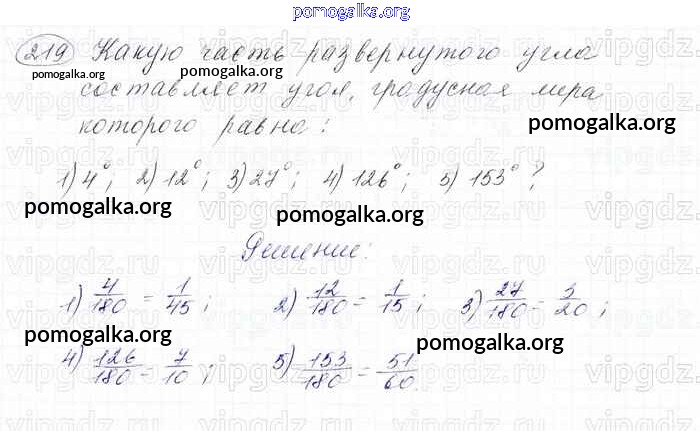 pomogalka.org
219 Какую часть развернутого угла
pomogalka.org pomogalka.org
составляет угол, градусная мера
которого равна: pomogalka.org
1) 4°; 2) 12°; 3) 27°; 4) 126°; 5) 153°?
pomogalka.org pomogalka.org
Решение:
1) 4/180 = 1/45; 2) 12/180 = 1/15; 3) 27/180 = 3/20;
pomogalka.org pomogalka.org
4) 126/180 = 7/10; 5) 153/180 = 51/60.
vipgdz.ru